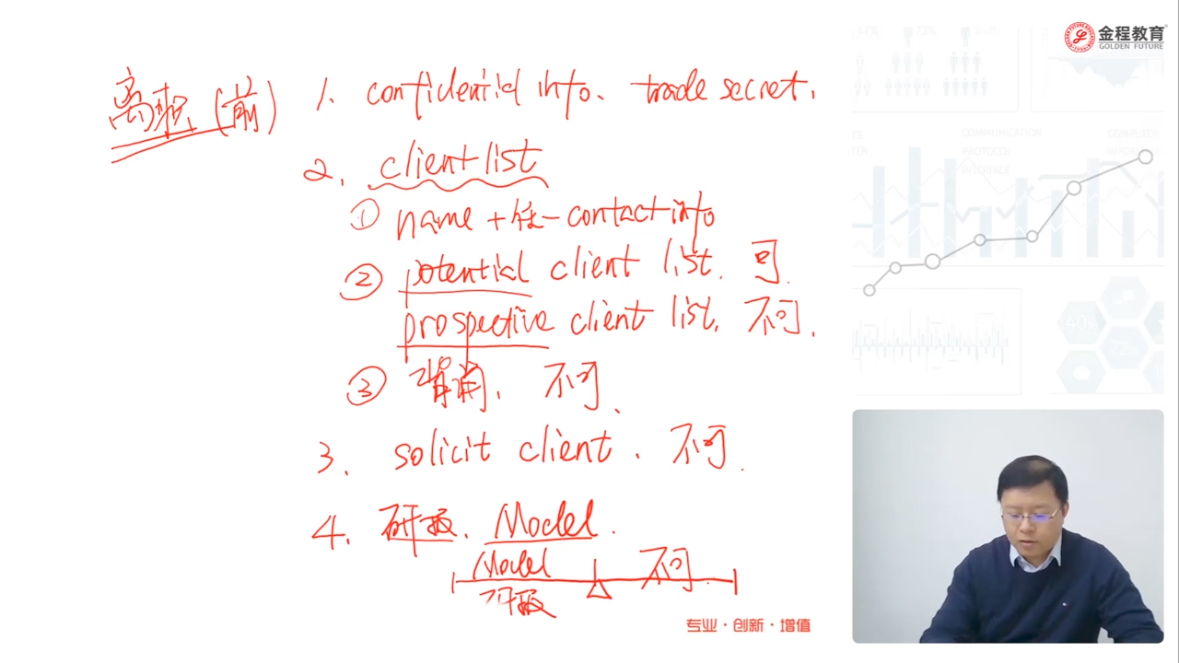 金程教育
GOLDEN FUTURE
离职(前)
1. confidential info、trade secret.
2. client list
① name + 任一 contact info
② potential client list. 可.
prospective client list. 不可.
③ 不可.
3. solicit client. 不可.
4. 研报、Model.
Model 不可.
研报
专业·创新·增值
COMMUNICATION
PROTOCOL
INTERFACE